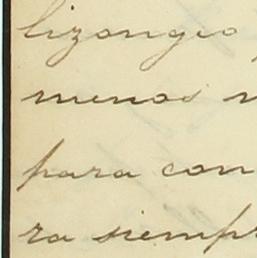 lizongeo
menos
para con
ra siempr